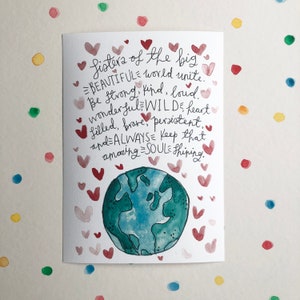 Sisters of the big
BEAUTIFUL world unite.
Be strong, kind, loud
wonderful WILD heart
filled, brave, persistent
and ALWAYS keep that
amazing SOUL shining.